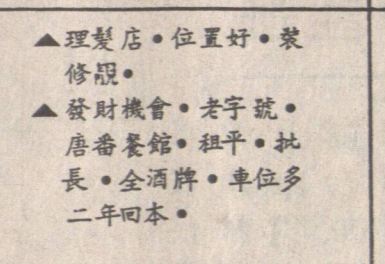 ▲理髮店•位置好•裝
修靚•
▲發財機會•老字號•
唐番餐館•租平•批
長•全酒牌•車位多
二年回本•